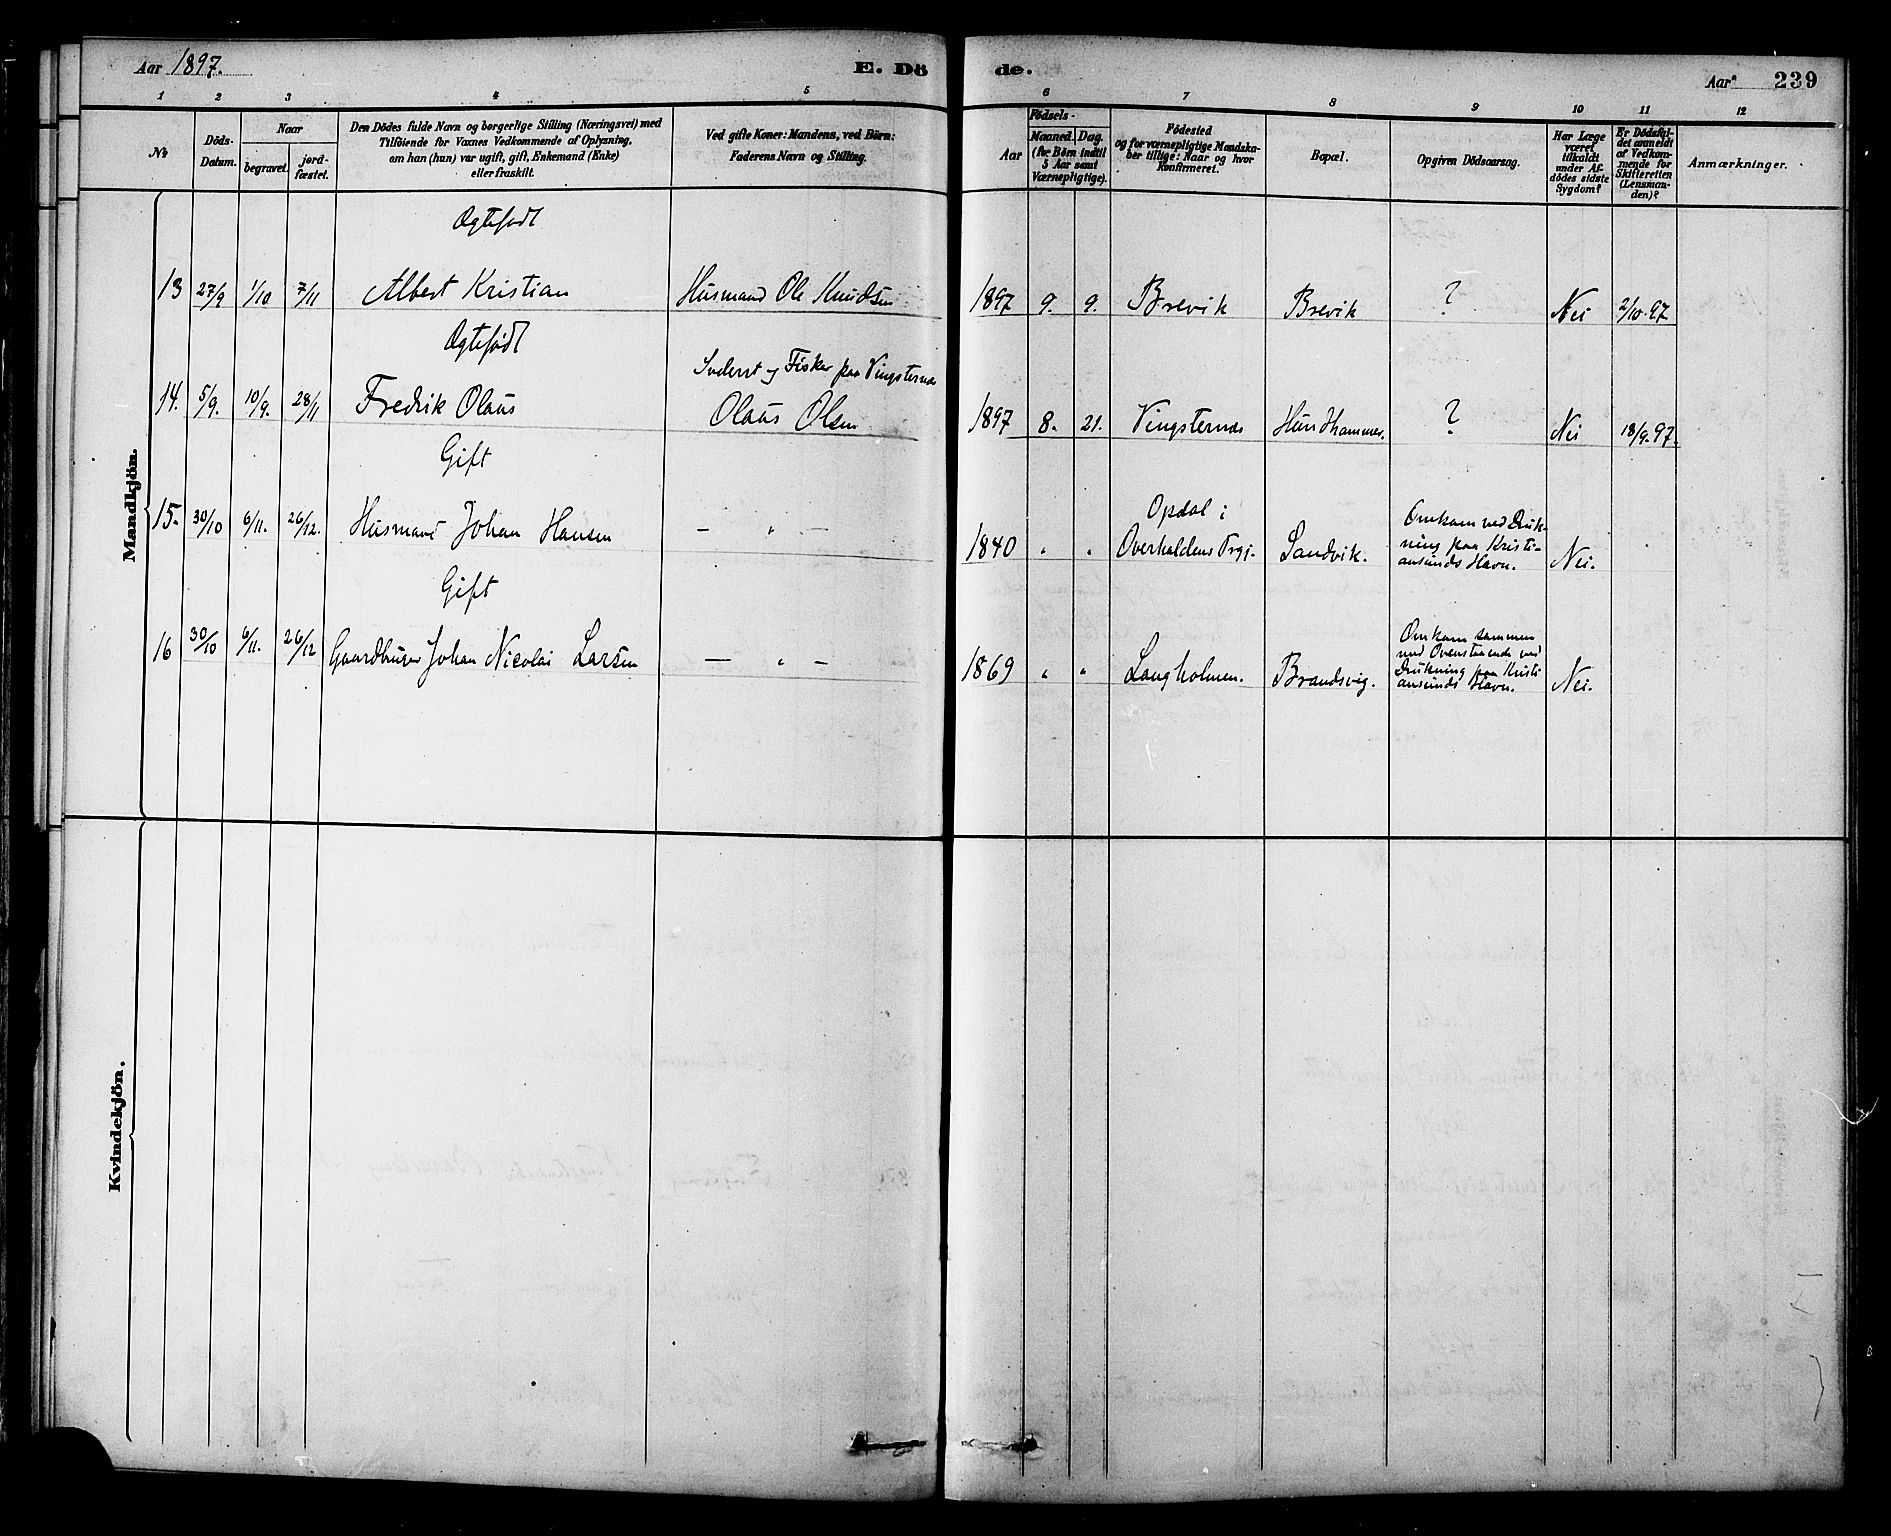 Aar 1897.
E. Dö
de.
Aar
239
1 2 3 4 5
6 7 8 9 10 11 12
No.
Döds-
Datum.
Naar
begravet.
jord-
fæstet.
Den Dödes fulde Navn og borgerlige Stilling (Næringsvei) med
Tilföiende for Voxnes Vedkommende af Oplysning,
om han (hun) var ugift, gift, Enkemand (Enke)
eller fraskilt.
Ved gifte Koner: Mandens, ved Börn:
Faderens Navn og Stilling.
Födsels-
Aar
Maaned.
Dag.
(for Börn indtil
5 Aar samt
Værnepligtige).
Födested
og for værnepligtige Mandska-
ber tillige: Naar og hvor
Konfirmeret.
Bopæl.
Opgiven Dödsaarsag.
Har Læge
været
tilkaldt
under Af-
dödes sidste
Sygdom?
Er Dödsfal-
det anmeldt
af Vedkom-
mende for
Skifteretten
(Lensman-
den)?
Anmærkninger.
Mandkjön.
Ægtefødt
13 27/9 1/10 7/11 Albert Kristian Husmand Ole Knudsen 1897 9. 9. Brevik Brevik ? Nei 2/10.97
Ægtefødt
og Fisker paa Vingsternæs
14. 5/9. 10/9. 28/11 Fredrik Olaus Olaus Olsen 1897 8. 21. Vingsternæs Hundhammer. ? Nei 18/9.97.
Gift
15. 30/10 6/11. 26/12. Husmand Johan Hansen — " — 1840 " " Opdal i
Overhaldens Prgj. Sandvik. Omkom ved Druk-
ning paa Kristi-
ansunds Havn. Nei.
Gift
16 30/10 6/11. 26/12 Gaardbruger Johan Nicolai Larsen — " — 1869 " " Langholmen. Brandsvig. Omkom sammen
med Ovenstaaende ved
Drukning paa Kristi-
ansunds Havn. Nei.
Kvindekjön.